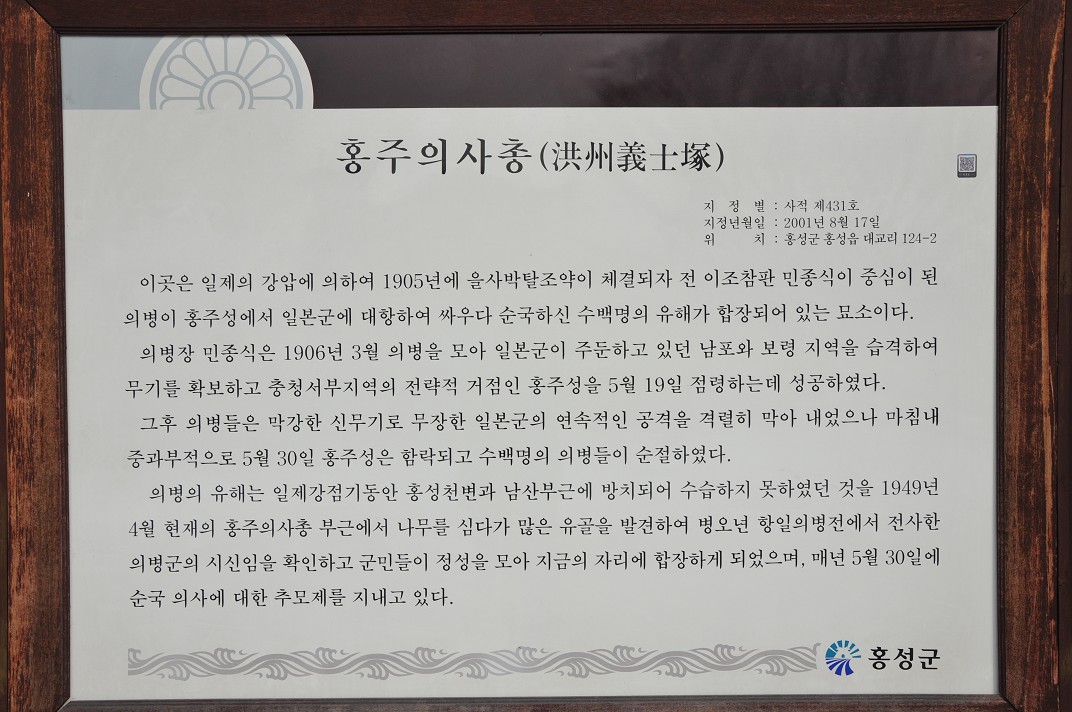 홍주의사총(洪州義士塚)
지 정 별 : 사적 제431호
지정년월일 : 2001년 8월 17일
위 치 : 홍성군 홍성읍 대교리 124-2
이곳은 일제의 강압에 의하여 1905년에 을사박탈조약이 체결되자 전 이조참판 민종식이 중심이 된
의병이 홍주성에서 일본군에 대항하여 싸우다 순국하신 수백명의 유해가 합장되어 있는 묘소이다.
의병장 민종식은 1906년 3월 의병을 모아 일본군이 주둔하고 있던 남포와 보령 지역을 습격하여
무기를 확보하고 충청서부지역의 전략적 거점인 홍주성을 5월 19일 점령하는데 성공하였다.
그후 의병들은 막강한 신무기로 무장한 일본군의 연속적인 공격을 격렬히 막아 내었으나 마침내
중과부적으로 5월 30일 홍주성은 함락되고 수백명의 의병들이 순절하였다.
의병의 유해는 일제강점기동안 홍성천변과 남산부근에 방치되어 수습하지 못하였던 것을 1949년
4월 현재의 홍주의사총 부근에서 나무를 심다가 많은 유골을 발견하여 병오년 항일의병전에서 전사한
의병군의 시신임을 확인하고 군민들이 정성을 모아 지금의 자리에 합장하게 되었으며, 매년 5월 30일에
순국 의사에 대한 추모제를 지내고 있다.
홍성군